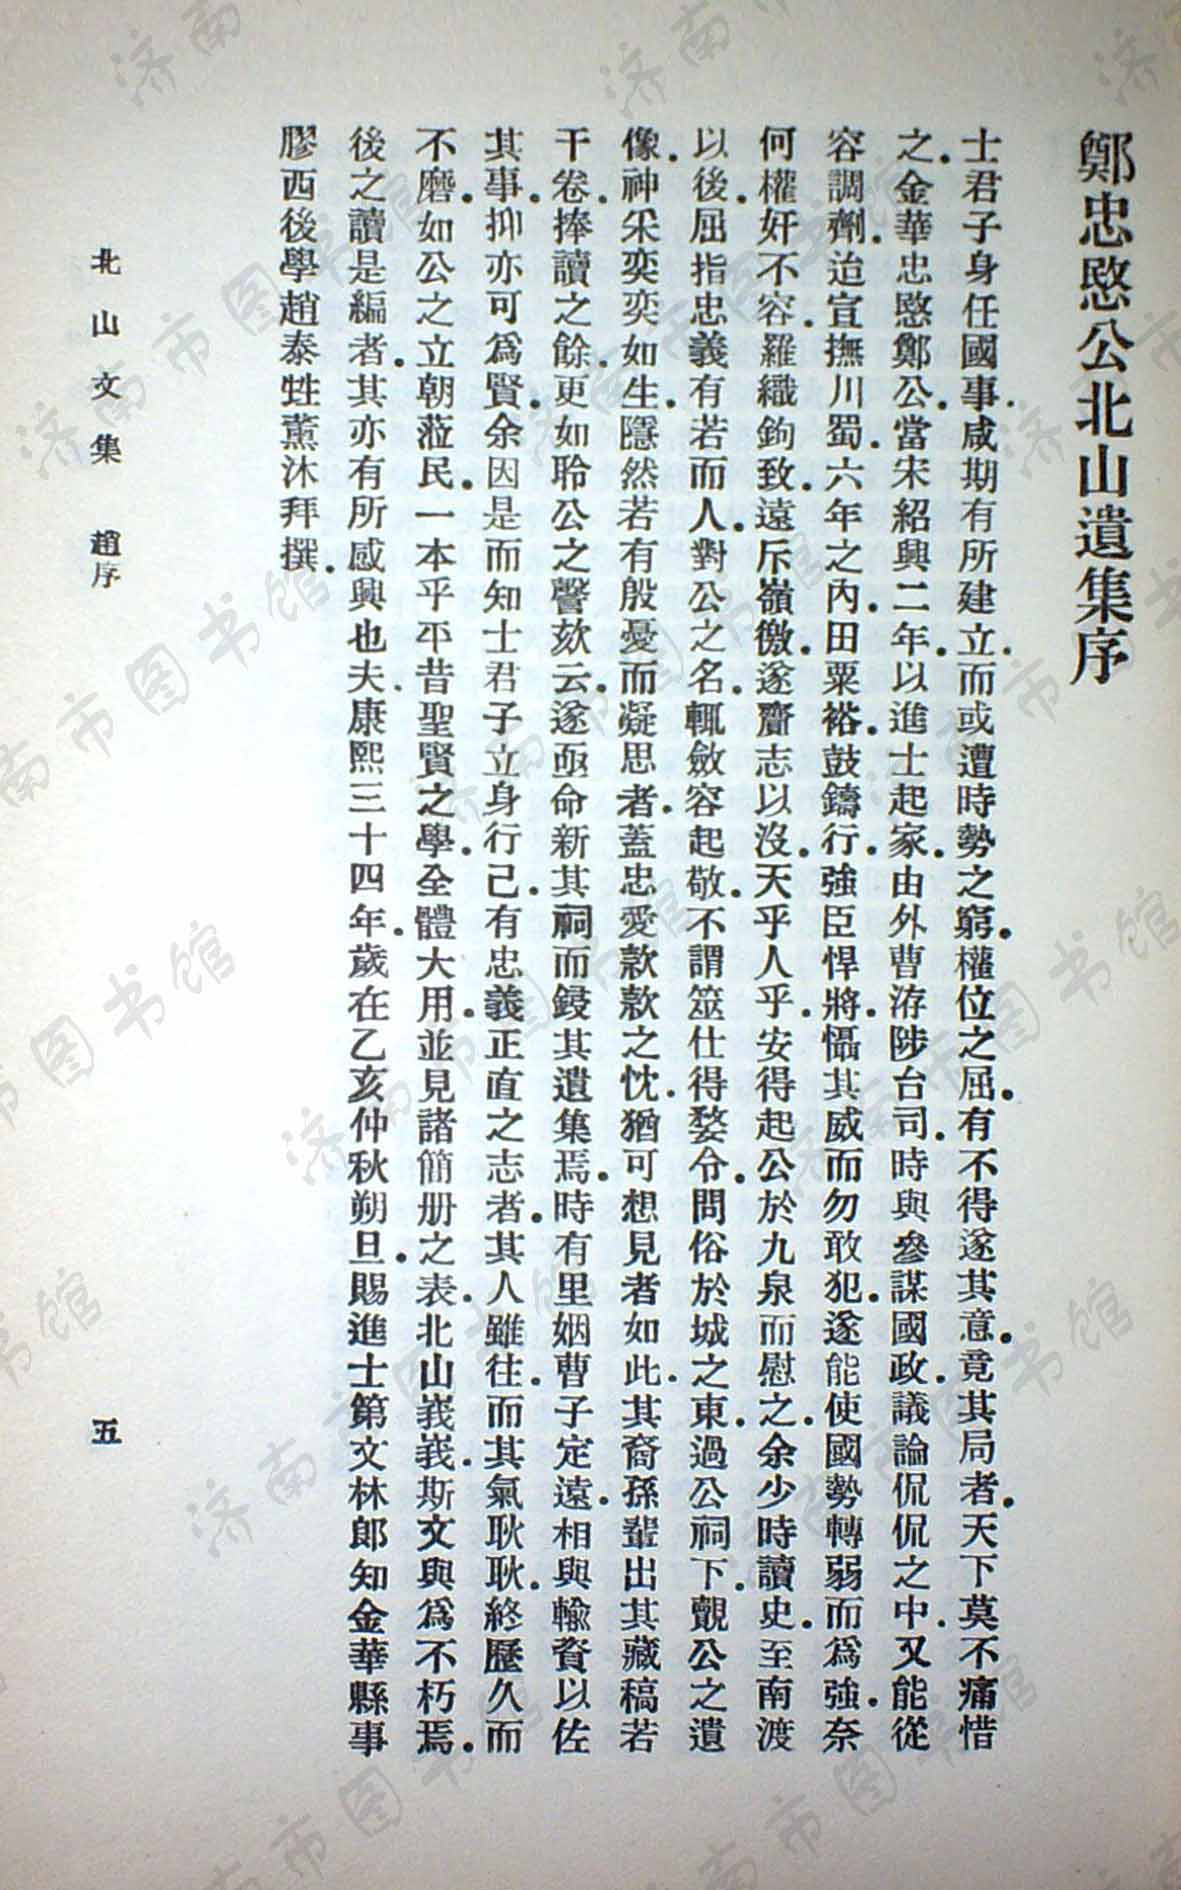 鄭忠愍公北山遺集序
士君子身任國事.咸期有所建立.而或遭時勢之窮.權位之屈.有不得遂其意.竟其局者.天下莫不痛惜
之.金華忠愍鄭公.當宋紹興二年.以進士起家.由外曹洊陟台司.時與參謀國政.議論侃侃之中.又能從
容調劑.迨宣撫川蜀.六年之內.田粟裕.鼓鑄行.強臣悍將.懾其威而勿敢犯.遂能使國勢轉弱而爲強.奈
何權奸不容.羅織鉤致.遠斥嶺徼.遂齎志以沒.天乎人乎.安得起公於九泉而慰之.余少時讀史.至南渡
以後.屈指忠義有若而人.對公之名.輒斂容起敬.不謂筮仕得婺令.問俗於城之東.過公祠下.觀公之遺
像.神采奕奕如生.隱然若有殷憂而凝思者.蓋忠愛款款之忱.猶可想見者如此.其裔孫輩出其藏稿若
干卷.捧讀之餘.更如聆公之謦欬云.遂亟命新其祠而鋟其遺集焉.時有里姻曹子定遠.相與輸資以佐
其事.抑亦可爲賢.余因是而知士君子立身行己.有忠義正直之志者.其人雖往.而其氣耿耿.終歷久而
不磨.如公之立朝蒞民.一本乎平昔聖賢之學.全體大用.並見諸簡册之表.北山峩峩.斯文與爲不朽焉.
後之讀是編者.其亦有所感興也夫.康熙三十四年.歲在乙亥仲秋朔旦.賜進士第文林郎知金華縣事
膠西後學趙泰甡薰沐拜撰.
北山文集 趙序 五
济南市图书馆